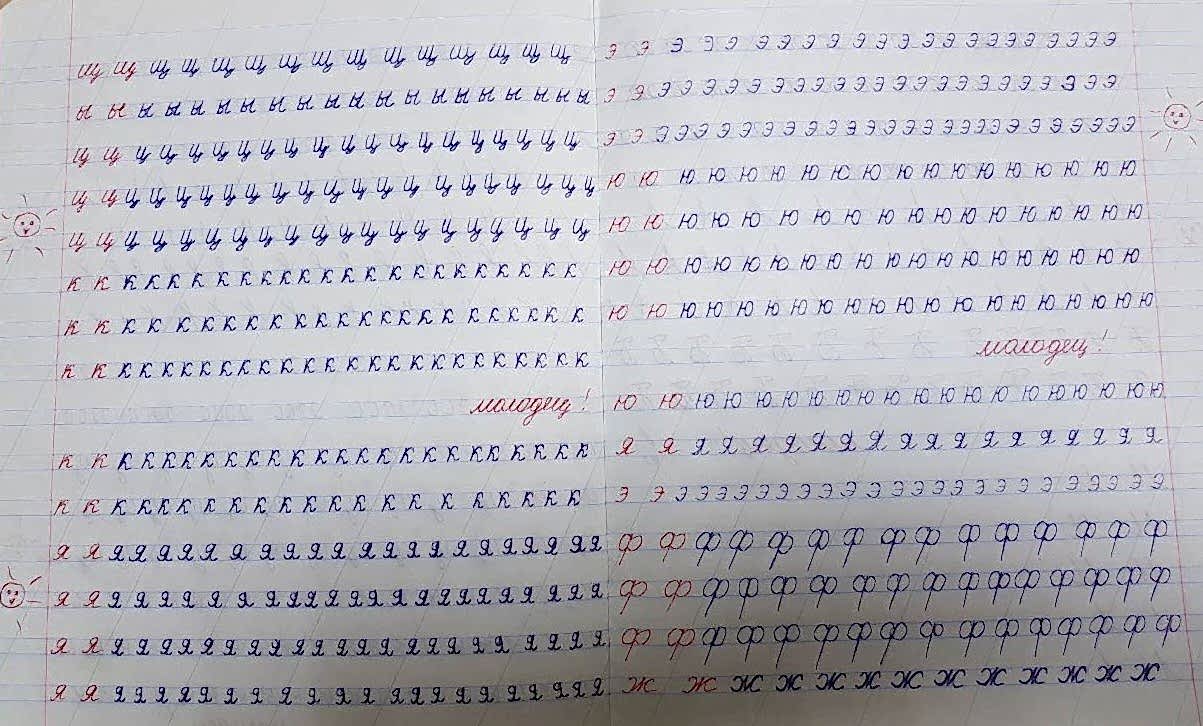 щ щ щ щ щ щ щ щ щ щ щ щ щ щ щ
ы ы ы ы ы ы ы ы ы ы ы ы ы ы ы ы ы ы ы ы
ц ц ц ц ц ц ц ц ц ц ц ц ц ц ц ц ц ц ц ц
ц ц ц ц ц ц ц ц ц ц ц ц ц ц ц ц ц ц ц ц ц
ц ц ц ц ц ц ц ц ц ц ц ц ц ц ц ц ц ц ц ц
к к к к к к к к к к к к к к к к к к к к к к
к к к к к к к к к к к к к к к к к к к к к к к
к к к к к к к к к к к к к к к к к к к к к к к к
молодец!
к к к к к к к к к к к к к к к к к к к к к к к к
к к к к к к к к к к к к к к к к к к к к к
я я я я я я я я я я я я я я я я я я я я я я я
я я я я я я я я я я я я я я я я я я я я я я я я
я я я я я я я я я я я я я я я я я я я я я я я
я я я я я я я я я я я я я я я я я я я я я я я
э э э э э э э э э э э э э э э э э э э э э
э э э э э э э э э э э э э э э э э э э э э э э
э э э э э э э э э э э э э э э э э э э э э э э э э э
ю ю ю ю ю ю ю ю ю ю ю ю ю ю ю ю ю ю
ю ю ю ю ю ю ю ю ю ю ю ю ю ю ю ю ю ю
ю ю ю ю ю ю ю ю ю ю ю ю ю ю ю ю ю ю ю
ю ю ю ю ю ю ю ю ю ю ю ю ю ю ю ю ю ю ю ю
молодец!
ю ю ю ю ю ю ю ю ю ю ю ю ю ю ю ю ю ю ю
я я я я я я я я я я я я я я я я я я я
э э э э э э э э э э э э э э э э э э э э э э э э
ф ф ф ф ф ф ф ф ф ф ф ф ф ф ф
ф ф ф ф ф ф ф ф ф ф ф ф ф ф ф ф
ф ф ф ф ф ф ф ф ф ф ф ф ф ф ф ф
ж ж ж ж ж ж ж ж ж ж ж ж ж